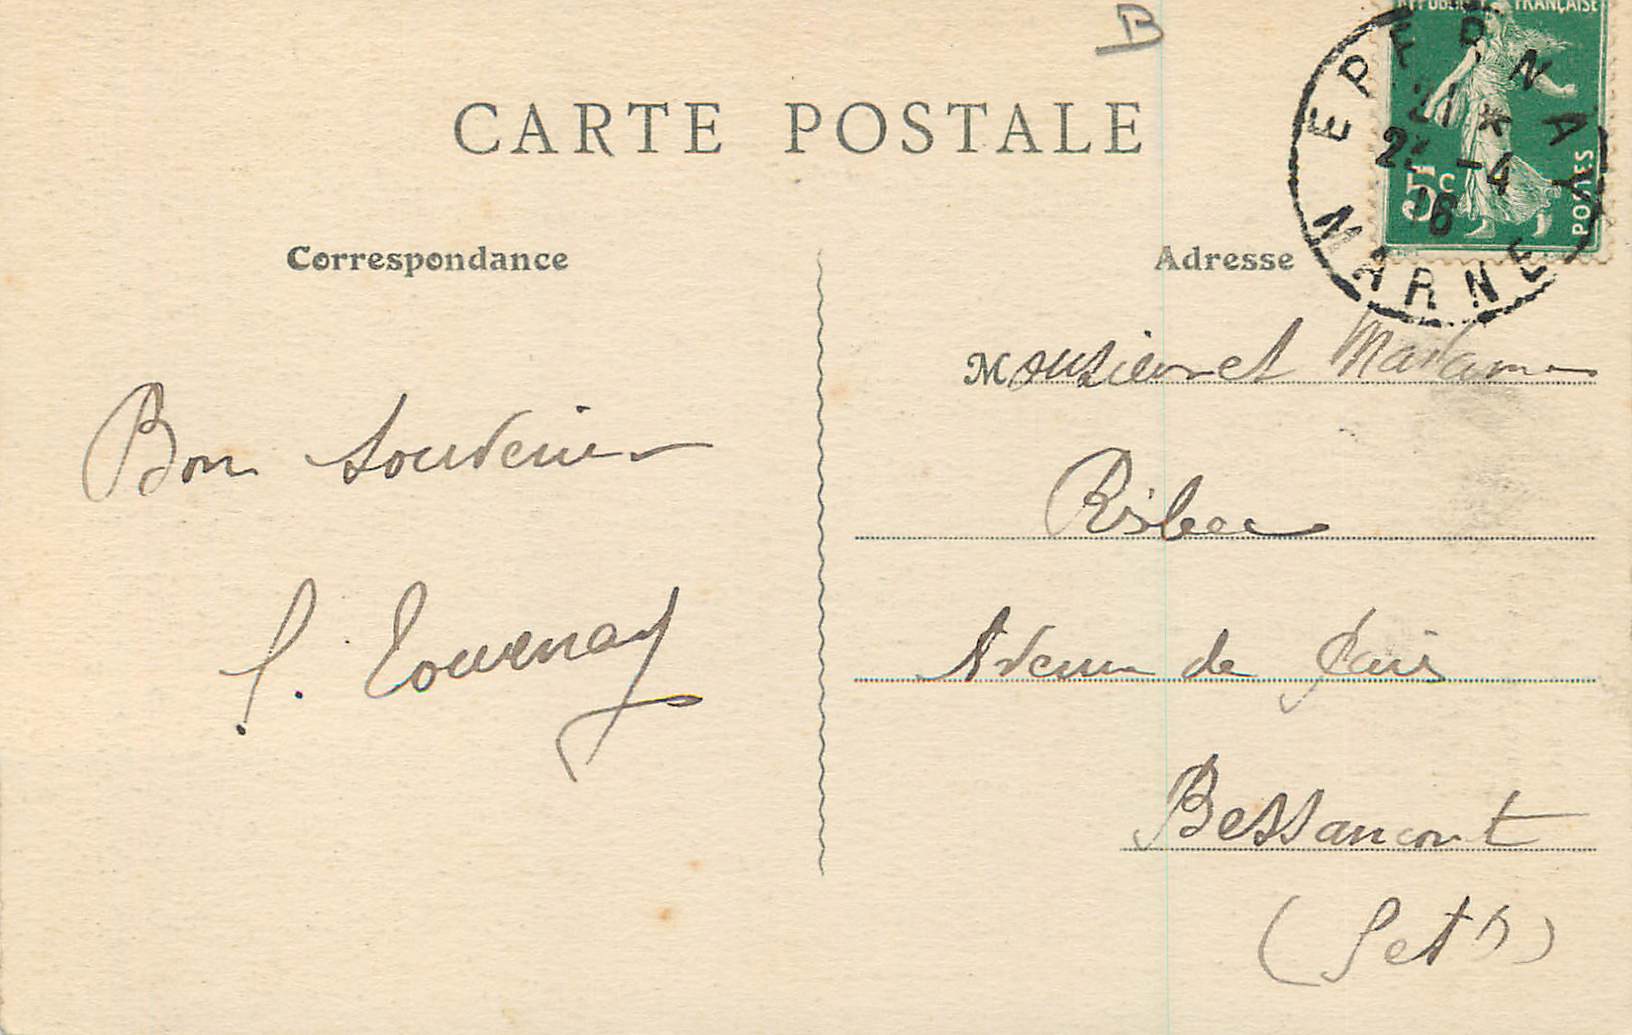 B
CARTE POSTALE
RÉPUBLIQUE FRANÇAISE
5c POSTES
EPERNAY
21 *
-4
16
MARNE
Correspondance
Bon souvenir
Adresse
Monsieur et Madame
Avenue de Paris
Bessancourt
(S et O)